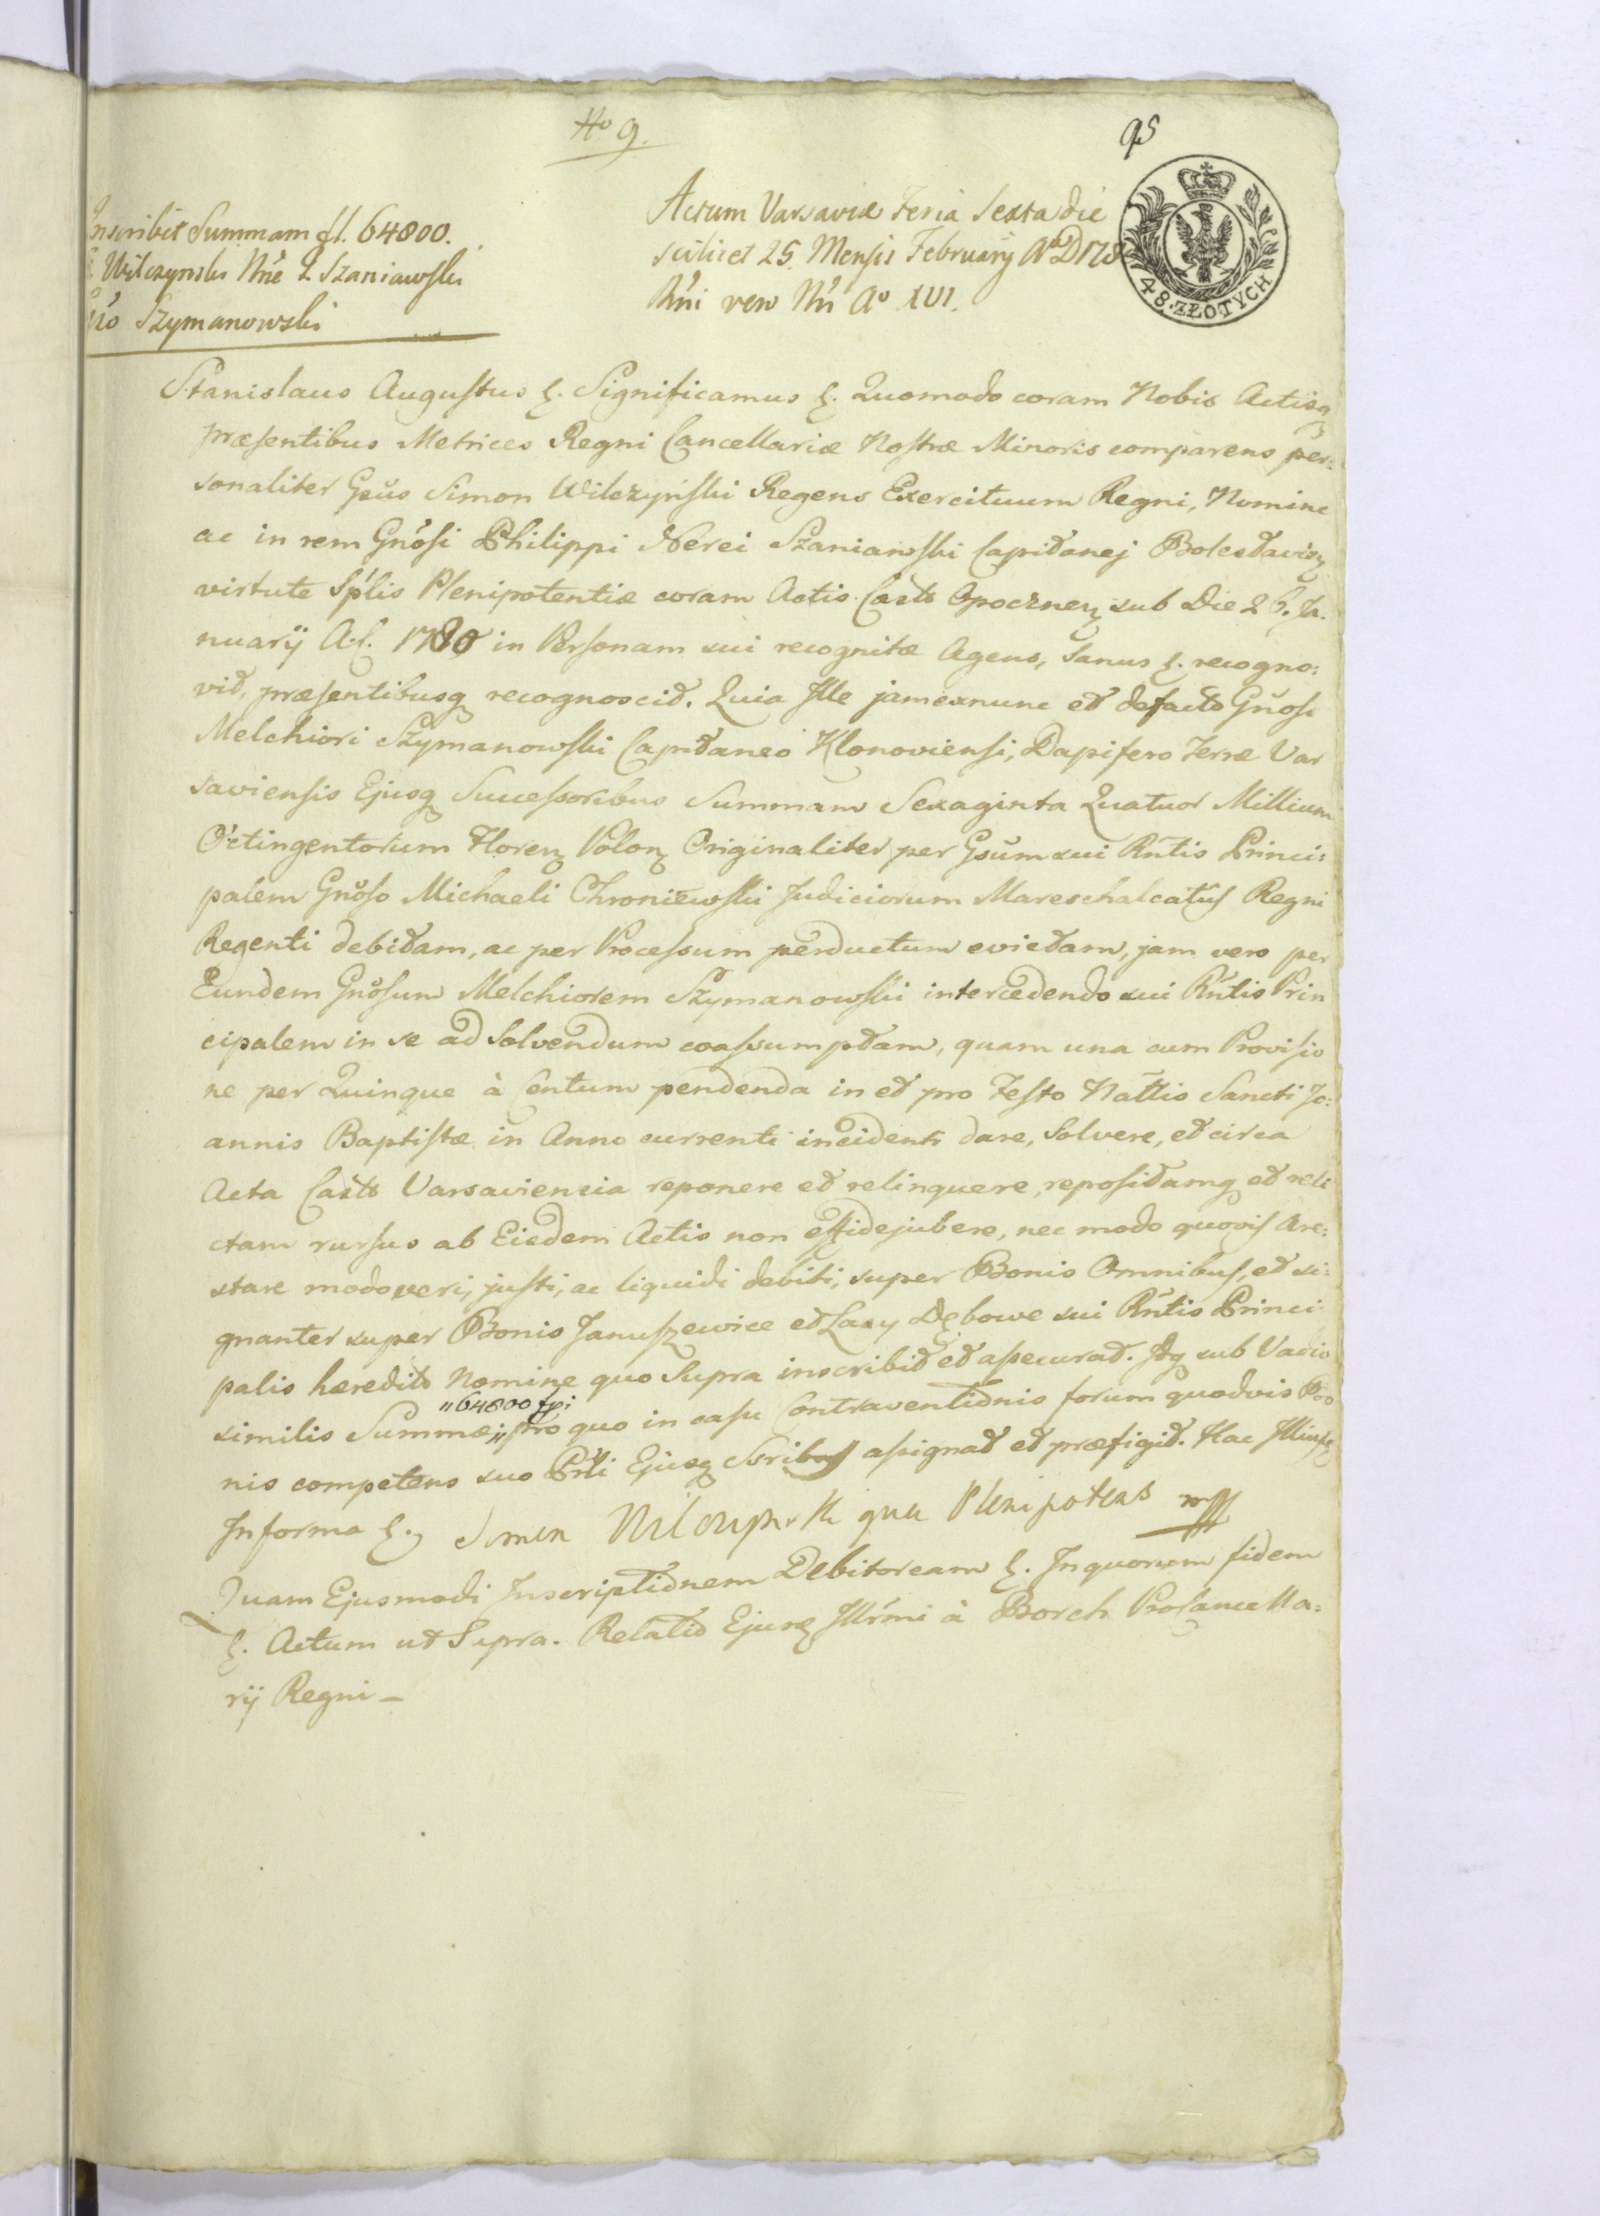 No 9.
95
Inscribit Summam fl. 64800.
Wilczynski Nne Szaniawski
Szymanowski
Actum Varsaviæ Feria Sexta die
scilicet 25. Mensis February Ao D 178
Rni vero Nri Ao XVI.
48. ZŁOTYCH
Stanislaus Augustus &. Significamus &. Quomodo coram Nobis Actisq
præsentibus Metrices Regni Cancellariæ Nostræ Minoris comparens per:
sonaliter Gsus Simon Wilczyński Regens Exercituum Regni, Nomine
ac in rem Gnosi Philippi Nerei Szaniawski Capitanej Boleslavien
virtute Splis Plenipotentiæ coram Actis Casts Opocznen sub Die 26. Ja.
nuarij A. C. 1780 in Personam sui recognitæ Agens, Sanus &. recogno:
vit, præsentibusq recognoscit. Quia Ille jamexnunc et defacto Gnoso
Melchiori Szymanowski Capitaneo Klonoviensi, Dapifero Terræ Var
saviensis Ejusq Successoribus Summam Sexaginta Quatuor Millium
Octingentorum Floren Polon Originaliter per Gsum sui Rntis Princi:
palem Gnoso Michaeli Chroniewski Judiciorum Mareschalcatus Regni
Regenti debitam, ac per Processum perductum evictam, jam vero per
Eundem Gnosum Melchiorem Szymanowski intercedendo sui Rntis Prin
cipalem in se ad Solvendum coassumptam, quam una cum Provisio
ne per Quinque à Centum pendenda in et pro Festo Nattis Sancti Jo:
annis Baptistæ in Anno currenti incidenti dare, Solvere, et circa
Acta Casts Varsaviensia reponere et relinquere, repositamq et reli
ctam rursus ab Eisdem Actis non effidejubere, nec modo quovis Are:
stare modo veri, justi, ac liquidi debiti, super Bonis Omnibus, et si:
gnanter super Bonis Januszewice et Lazy Dębowe sui Rntis Princi
palis hæredits Nomine quo Supra inscribit et assecurat. Idq sub Vadio
similis Summæ „64800 fpi„ pro quo in casu Contraventionis forum quodvis Poo
nis competens suo Prli Ejusq Ssribus assignat et præfigit. Hac
Informa &. Simon Wilczynski qua Plenipotens mpp
Quam Ejusmodi Inscriptionem Debitoream &. Inquorum fidem
&. Actum ut Supra. Relatio Ejusq Illrmi à Borch Procancella:
rij Regni –